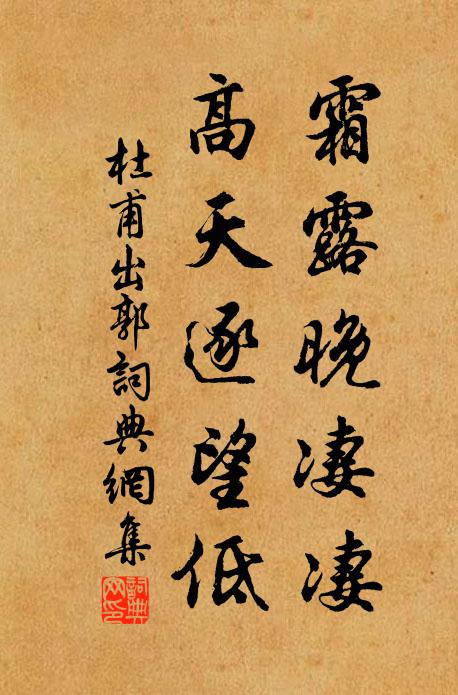 霜露晚凄凄
高天逐望低
杜甫出郭詞典網集
詞典網印